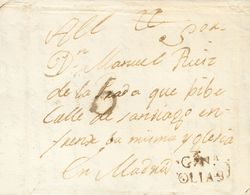 All Sor.
Dn. Manuel Ruiz
de la Prada que vibe
Calle de santiago en
frente la misma yglesia
En Madrid
6
OLIAS